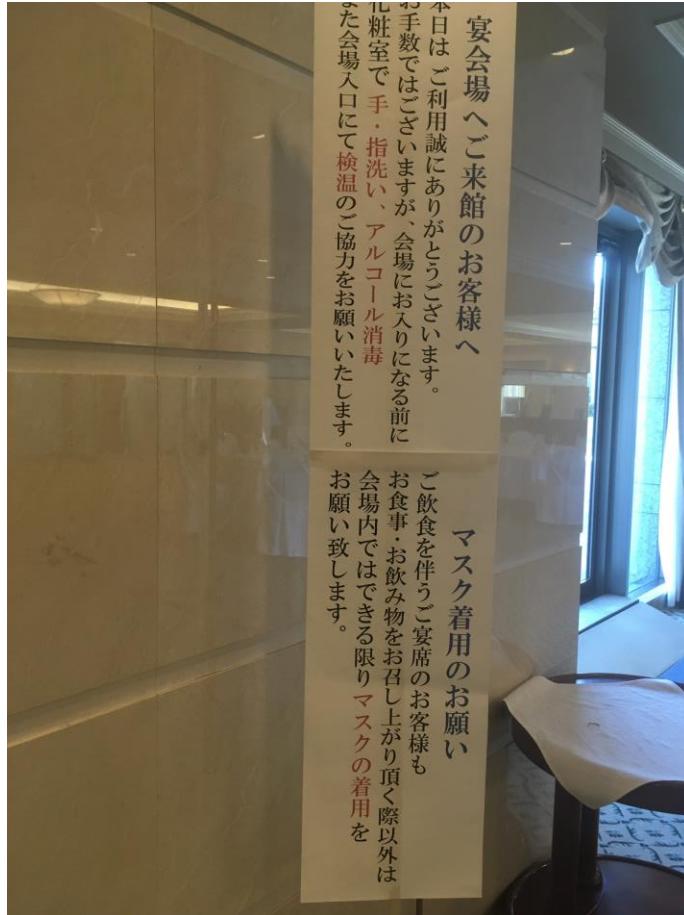 宴会場へご来館のお客様へ
本日は ご利用誠にありがとうございます。
お手数ではございますが、会場にお入りになる前に
化粧室で 手・指洗い、アルコール消毒
また会場入口にて検温のご協力をお願いいたします。
マスク着用のお願い
ご飲食を伴うご宴席のお客様も
お食事・お飲み物をお召し上がり頂く際以外は
会場内ではできる限りマスクの着用を
お願い致します。